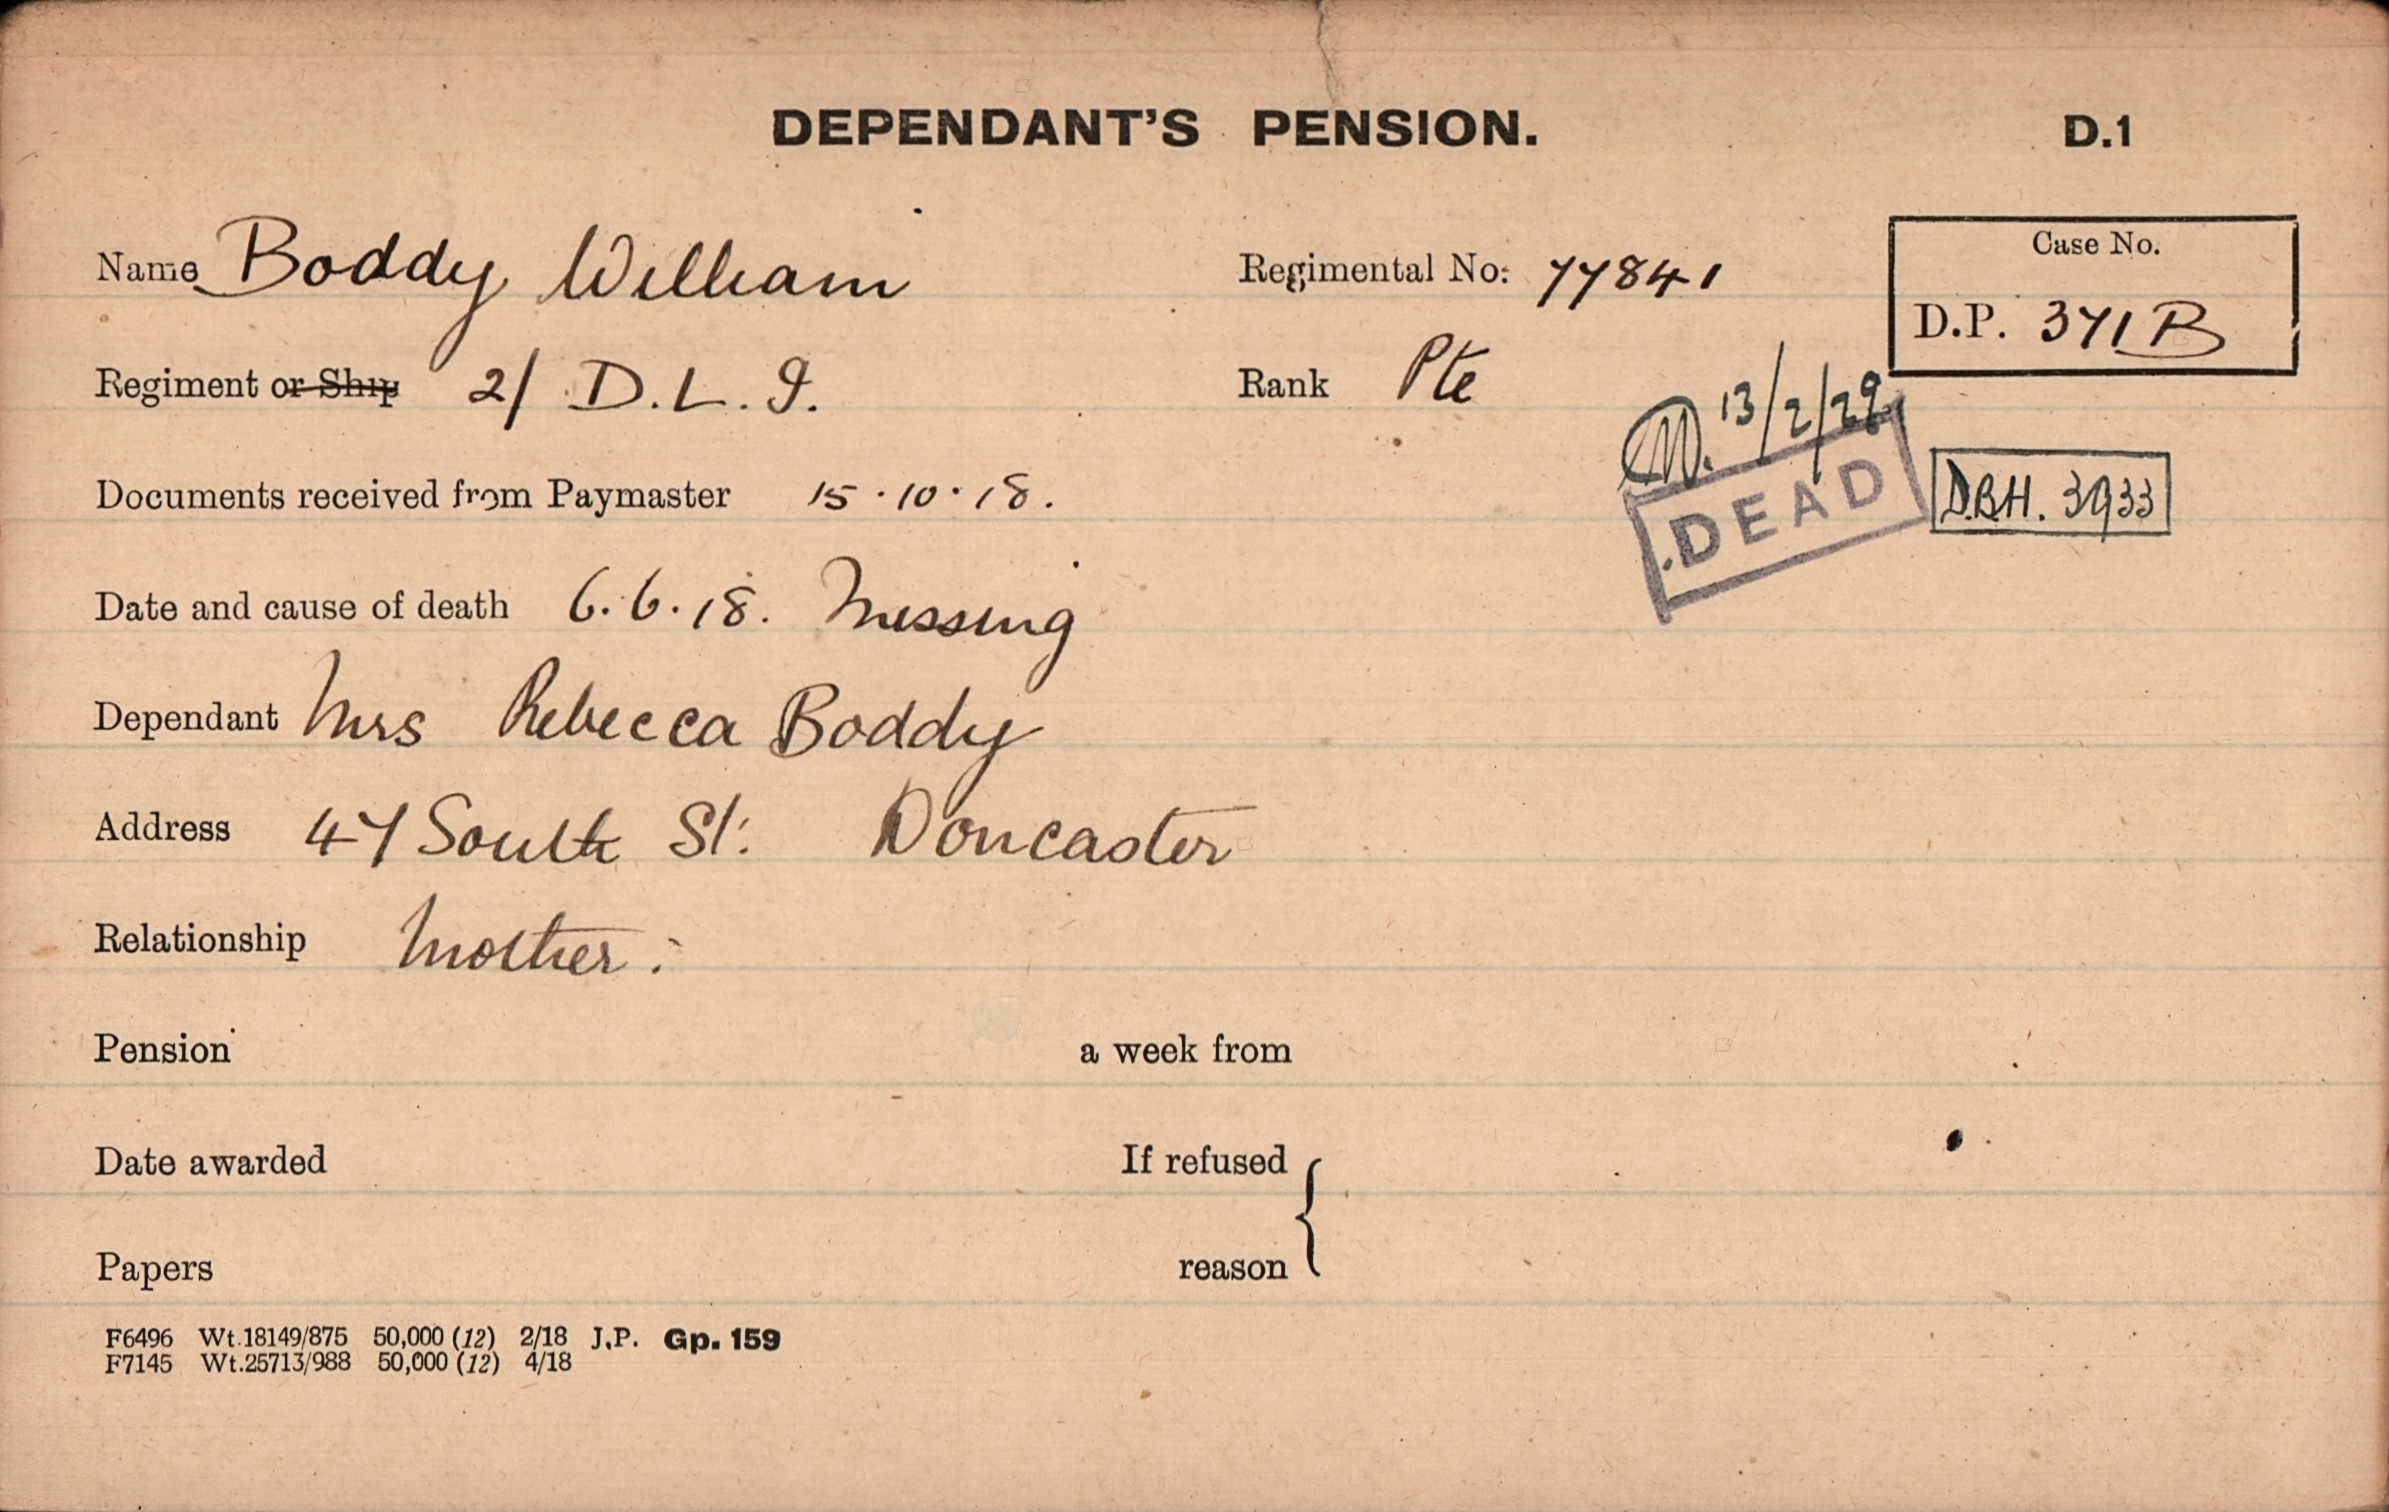 DEPENDANT'S PENSION. D.1
Name Boddy William Regimental No: 77841 Case No.
D.P. 371 B
Regiment or Ship 2/ D.L.I. Rank Pte
M. 13/2/29
Documents received from Paymaster 15.10.18. DEAD D.B.H. 3933
Date and cause of death 6.6.18. Missing
Dependant Mrs Rebecca Boddy
Address 47 South St: Doncaster
Relationship Mother:
Pension a week from
Date awarded If refused
Papers reason
F6496 Wt.18149/875 50,000 (12) 2/18 J.P. Gp. 159
F7145 Wt.25713/988 50,000 (12) 4/18